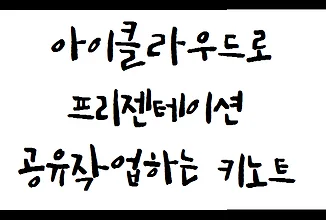 아이클라우드로
프리젠테이션
공유작업하는 키노트